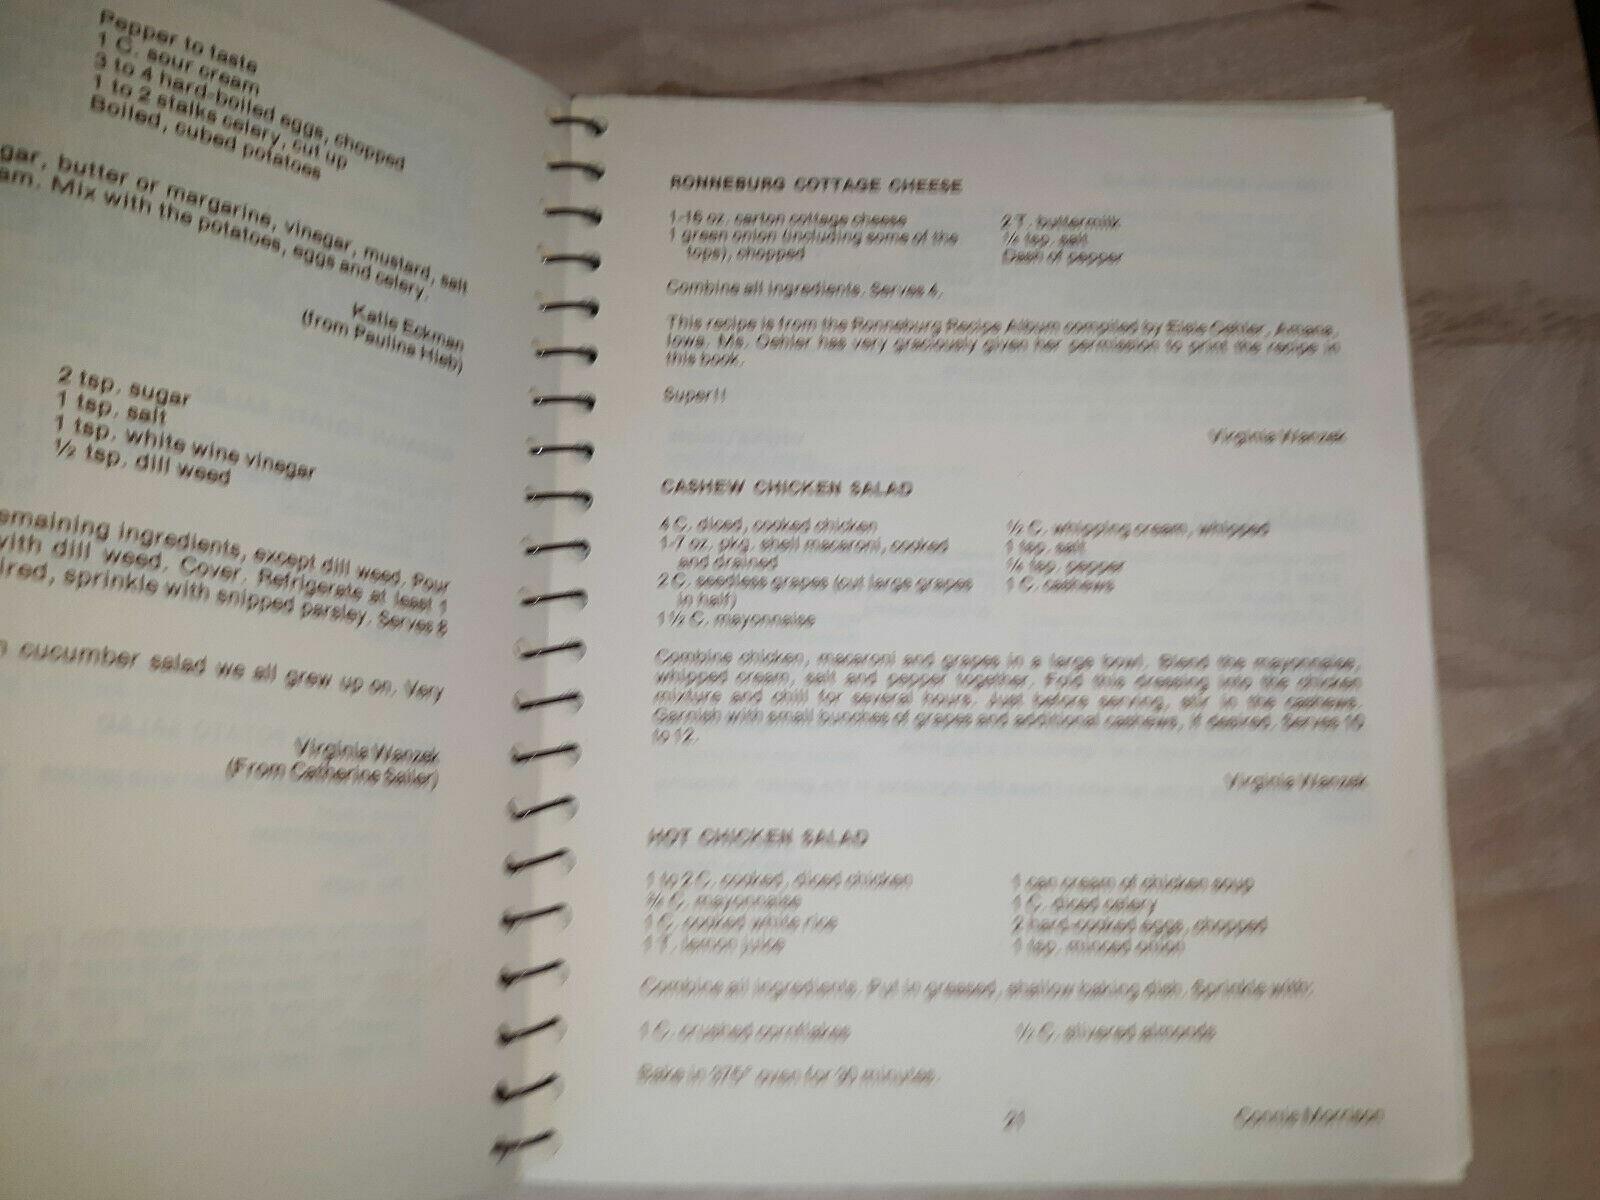 Pepper to taste
1 C. sour cream
3 to 4 hard-boiled eggs, chopped
1 to 2 stalks celery, cut up
Boiled, cubed potatoes
gar, butter or margarine, vinegar, mustard, salt
am. Mix with the potatoes, eggs and celery.
Katie Eckman
(from Paulina Hieb)
2 tsp. sugar
1 tsp. salt
1 tsp. white wine vinegar
½ tsp. dill weed
emaining ingredients, except dill weed. Pour
with dill weed. Cover. Refrigerate at least 1
ired, sprinkle with snipped parsley. Serves 8
n cucumber salad we all grew up on. Very
Virginia Wanzek
(From Catherine Seiler)
RONNEBURG COTTAGE CHEESE
1-16 oz. carton cottage cheese
1 green onion (including some of the
tops), chopped
2 T. buttermilk
¼ tsp. salt
Dash of pepper
Combine all ingredients. Serves 4.
This recipe is from the Ronneburg Recipe Album compiled by Elsie Oehler, Amana,
Iowa. Ms. Oehler has very graciously given her permission to print the recipe in
this book.
Super!!
Virginia Wanzek
CASHEW CHICKEN SALAD
4 C. diced, cooked chicken
1-7 oz. pkg. shell macaroni, cooked
and drained
2 C. seedless grapes (cut large grapes
in half)
1½ C. mayonnaise
½ C. whipping cream, whipped
1 tsp. salt
¼ tsp. pepper
1 C. cashews
Combine chicken, macaroni and grapes in a large bowl. Blend the mayonnaise,
whipped cream, salt and pepper together. Fold this dressing into the chicken
mixture and chill for several hours. Just before serving, stir in the cashews.
Garnish with small bunches of grapes and additional cashews, if desired. Serves 10
to 12.
Virginia Wanzek
HOT CHICKEN SALAD
1 to 2 C. cooked, diced chicken
¾ C. mayonnaise
1 C. cooked white rice
1 T. lemon juice
1 can cream of chicken soup
1 C. diced celery
2 hard-cooked eggs, chopped
1 tsp. minced onion
Combine all ingredients. Put in greased, shallow baking dish. Sprinkle with:
1 C. crushed cornflakes
½ C. slivered almonds
Bake in 375° oven for 30 minutes.
21
Connie Morrison